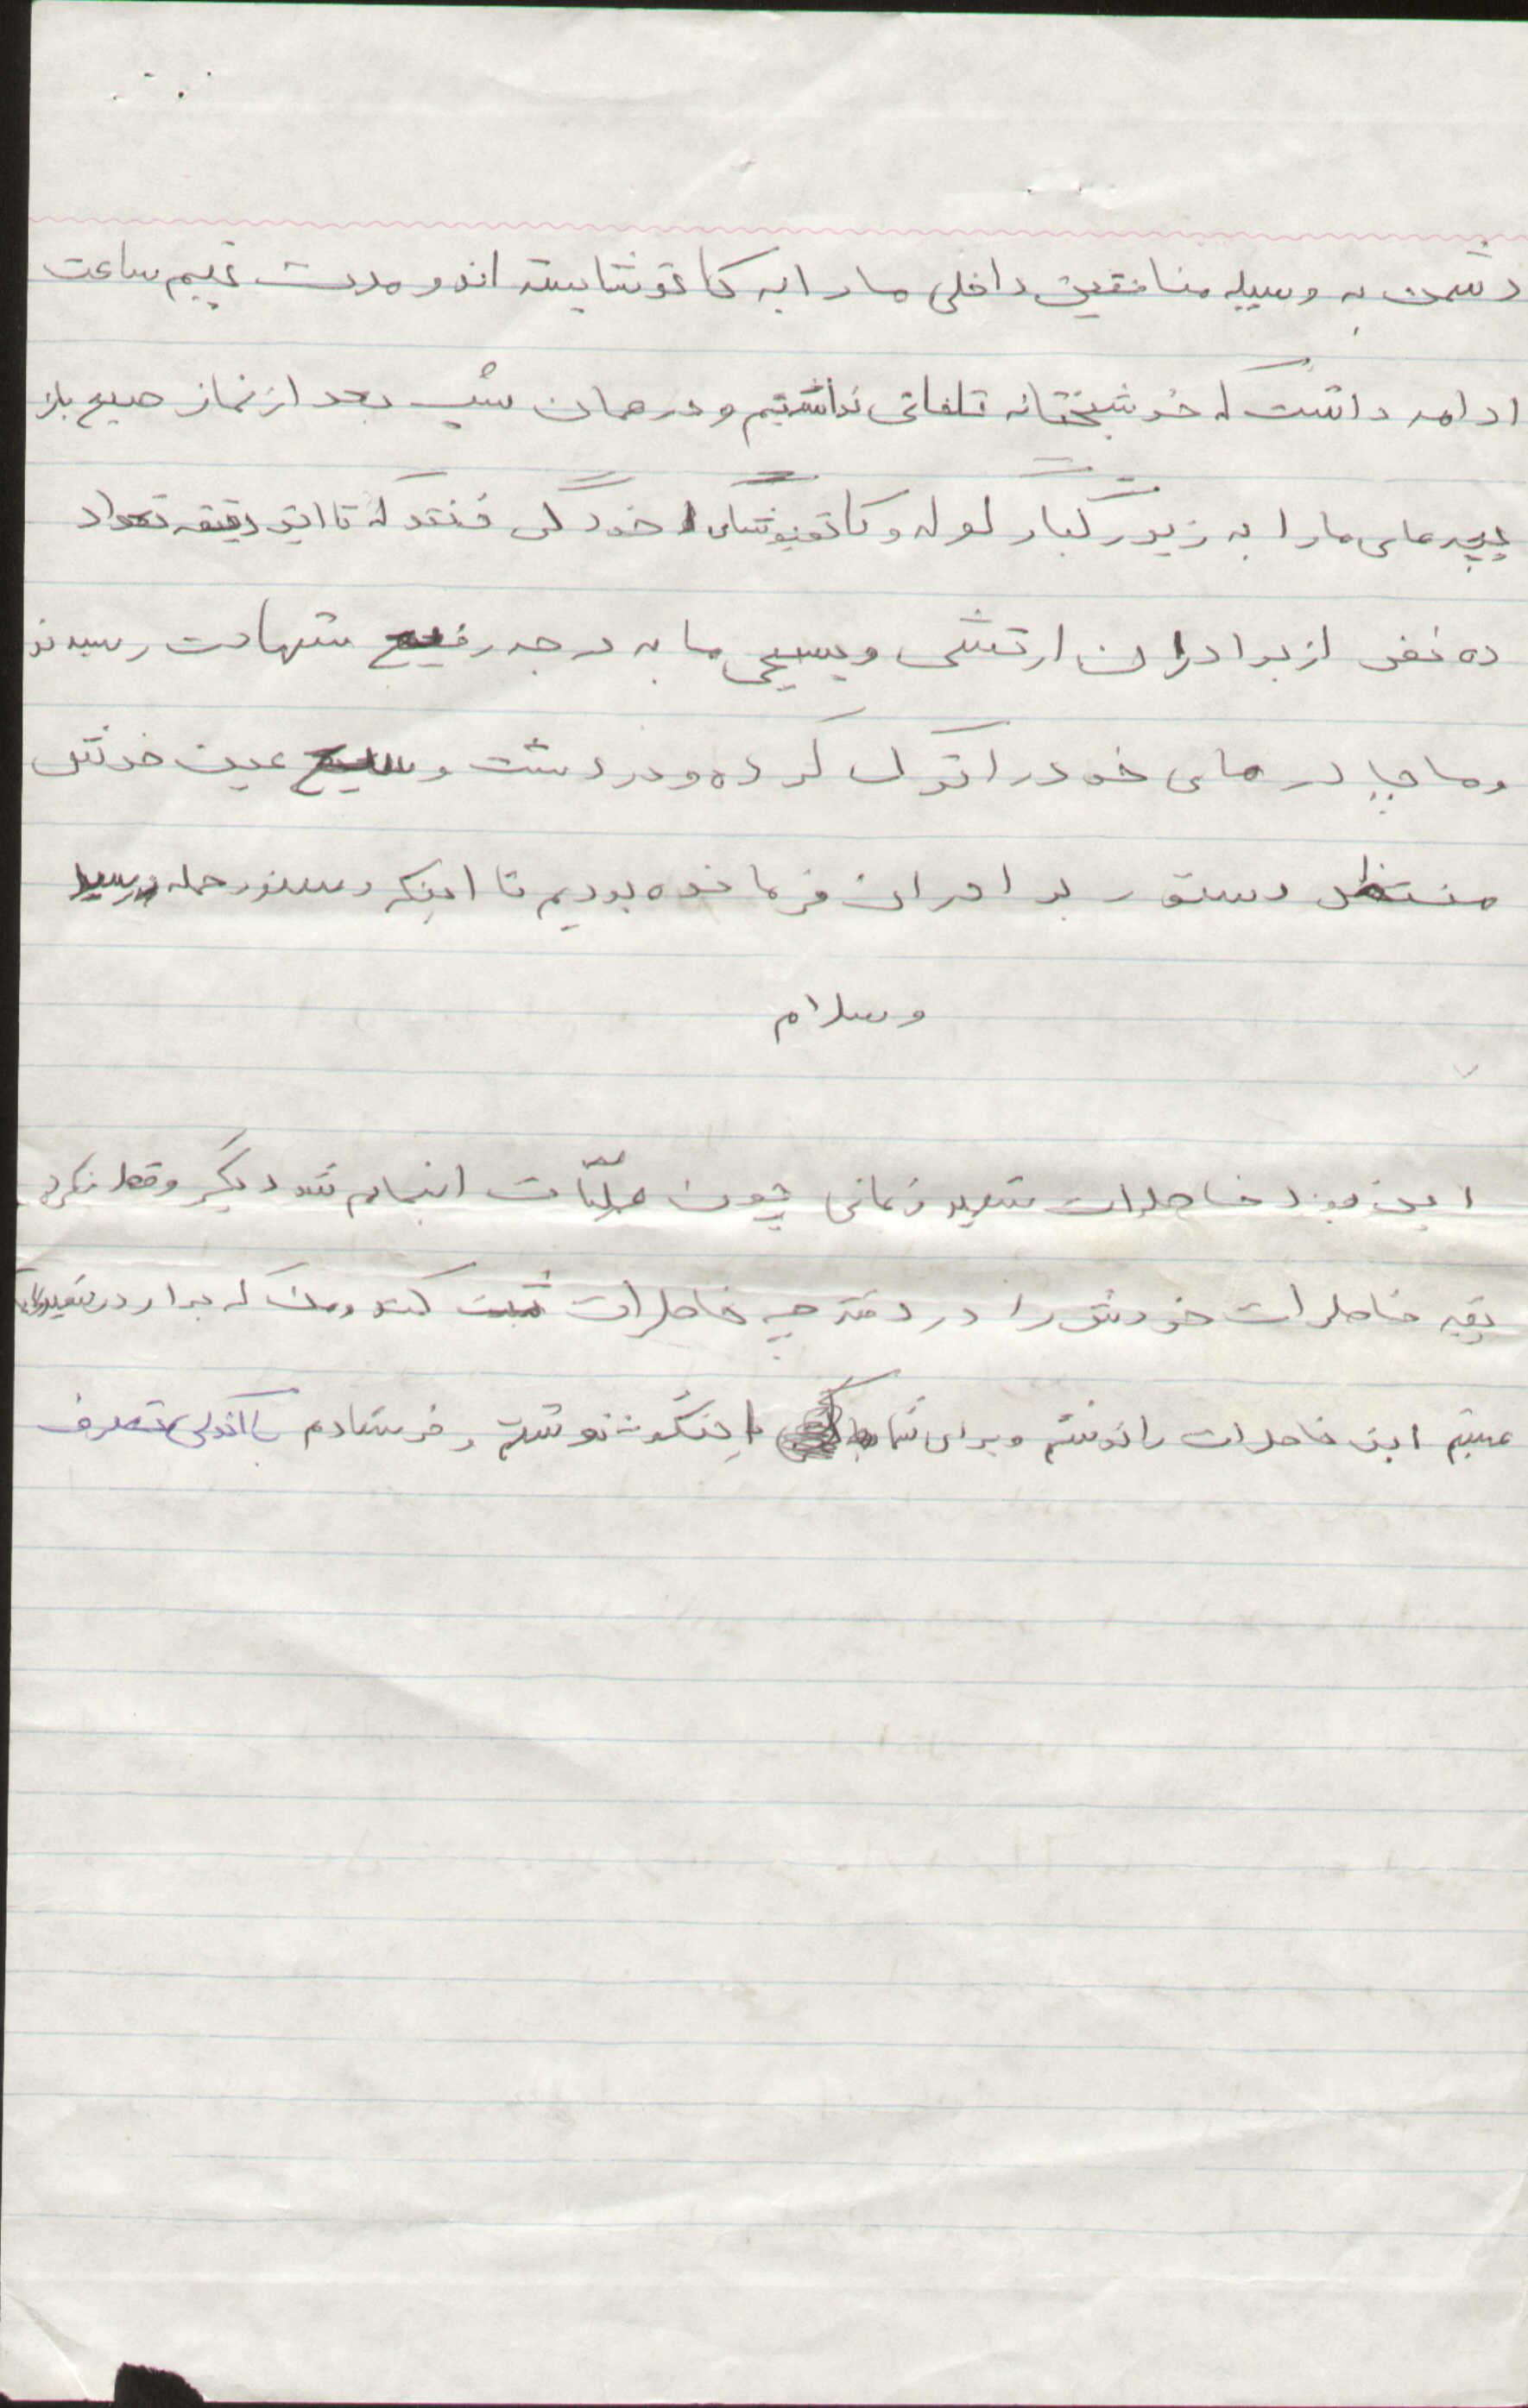 دشمن به وسیله منافقین داخلی ما را به کاتوشا بسته اند و مدت نیم ساعت
ادامه داشت که خوشبختانه تلفاتی نداشتیم و در همان شب بعد از نماز صبح باز
بچه های ما را به زیر رگبار گلوله و کاتیوشای خود گرفتند که تا این دقیقه تعداد
ده نفر از برادران ارتشی و بسیجی ما به درجه رفیع شهادت رسیدند
و ما چادرهای خود را ترک کرده و در دشت وسیع عین خوش
منتظر دستور برادران فرمانده بودیم تا اینکه دستور حمله رسید
وسلام
این بود خاطرات شهید زمانی چون عملیات انجام شد دیگر وقت نکرد
بقیه خاطرات خودش را در دفترچه خاطرات ثبت کند و من که برادر شهید
هستم این خاطرات را نوشتم و برای شما نوشتم و فرستادم با اندکی تصرف